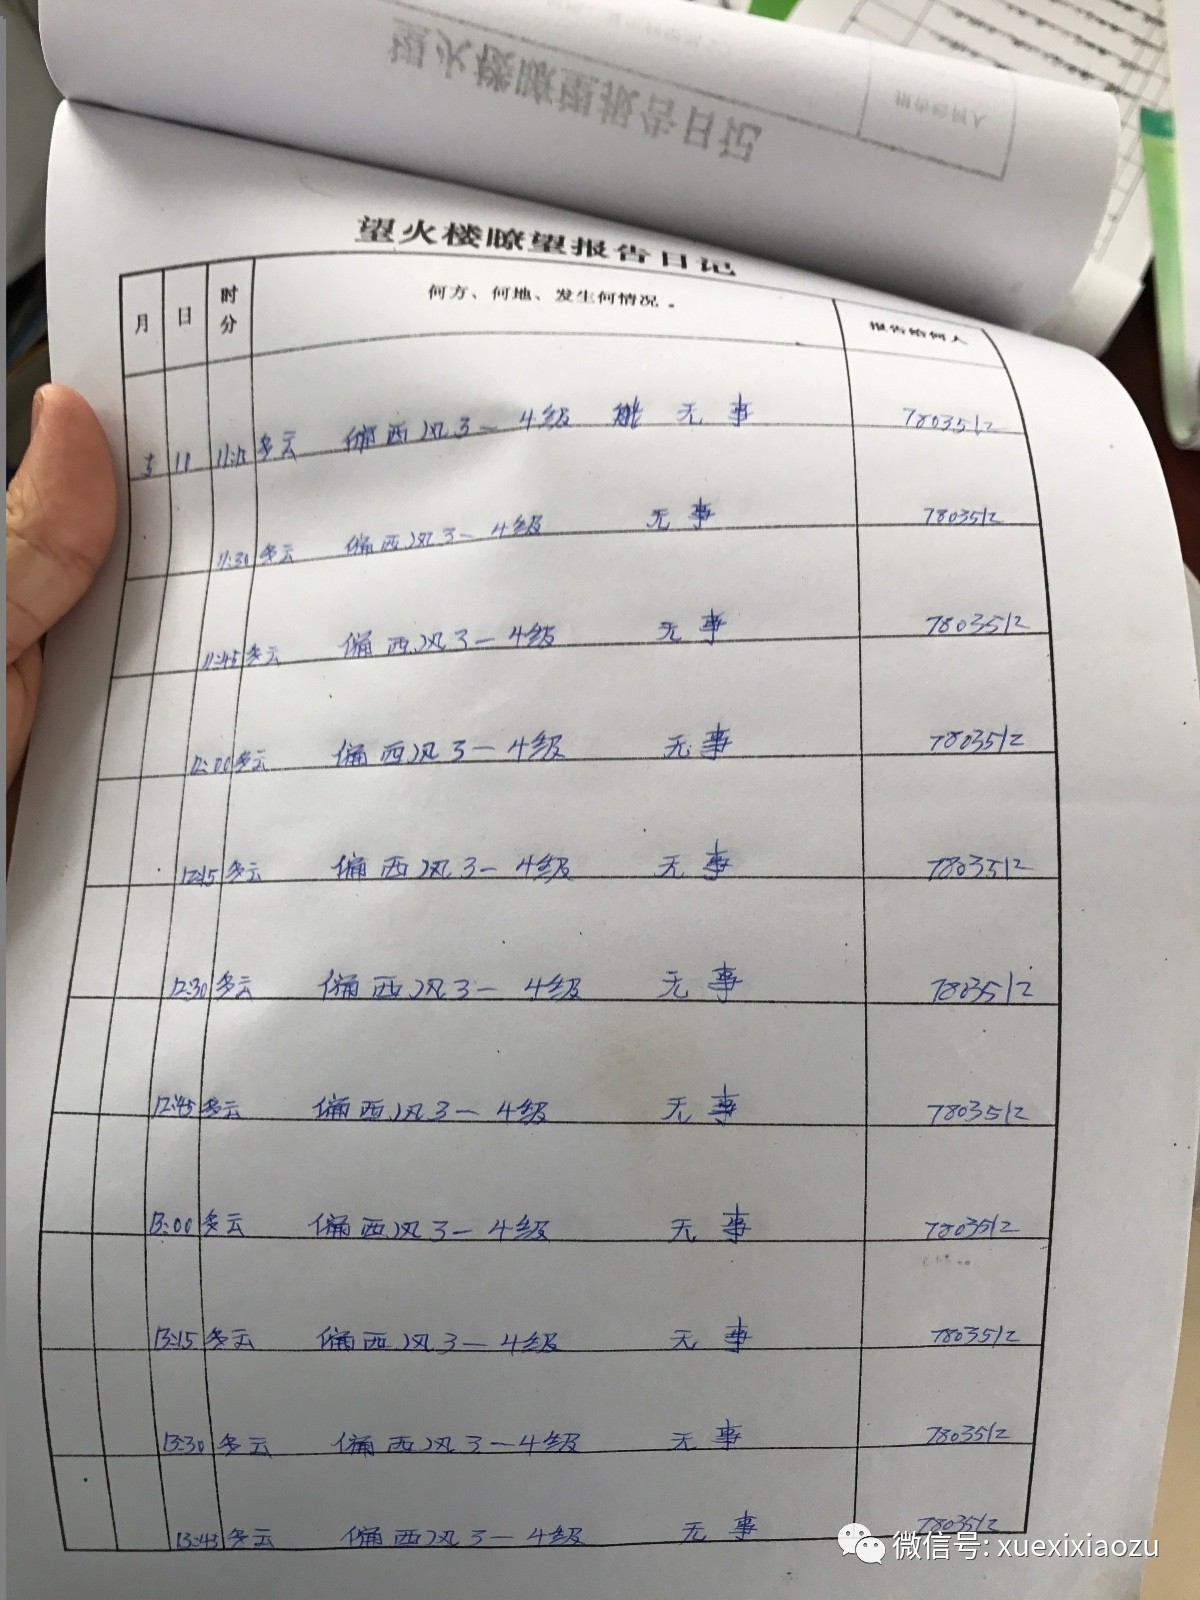 望火楼瞭望报告日记
望火楼瞭望报告日记
月 日 时分 何方、何地、发生何情况。 报告给何人
5 11 11:15 多云 偏西风3-4级 无事 7803512
11:30 多云 偏西风3-4级 无事 7803512
11:45 多云 偏西风3-4级 无事 7803512
12:00 多云 偏西风3-4级 无事 7803512
12:15 多云 偏西风3-4级 无事 7803512
12:30 多云 偏西风3-4级 无事 7803512
12:45 多云 偏西风3-4级 无事 7803512
13:00 多云 偏西风3-4级 无事 7803512
13:15 多云 偏西风3-4级 无事 7803512
13:30 多云 偏西风3-4级 无事 7803512
13:43 多云 偏西风3-4级 无事 7803512
微信号: xuexixiaozu